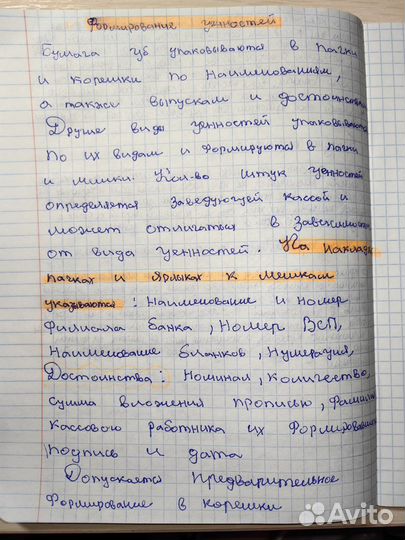 Формирование ценностей
Бумага ЦБ упаковываются в пачки
и корешки по наименованиям,
а также выпускам и достоинствам
Другие виды ценностей упаковываются
по их видам и формируются в пачки
и мешки. Кол-во штук ценностей
определяется заведующей кассой и
может отличаться в зависимости
от вида ценностей. На накладках
пачках и ярлыках к мешкам
указываются: Наименование и номер
филиала банка, Номер ВСП,
Наименование бланков, Нумерация,
Достоинства: номинал, количество,
сумма вложения прописью, фамилия
кассового работника их формировавшего
подпись и дата
Допускается предварительное
формирование в корешки
Avito